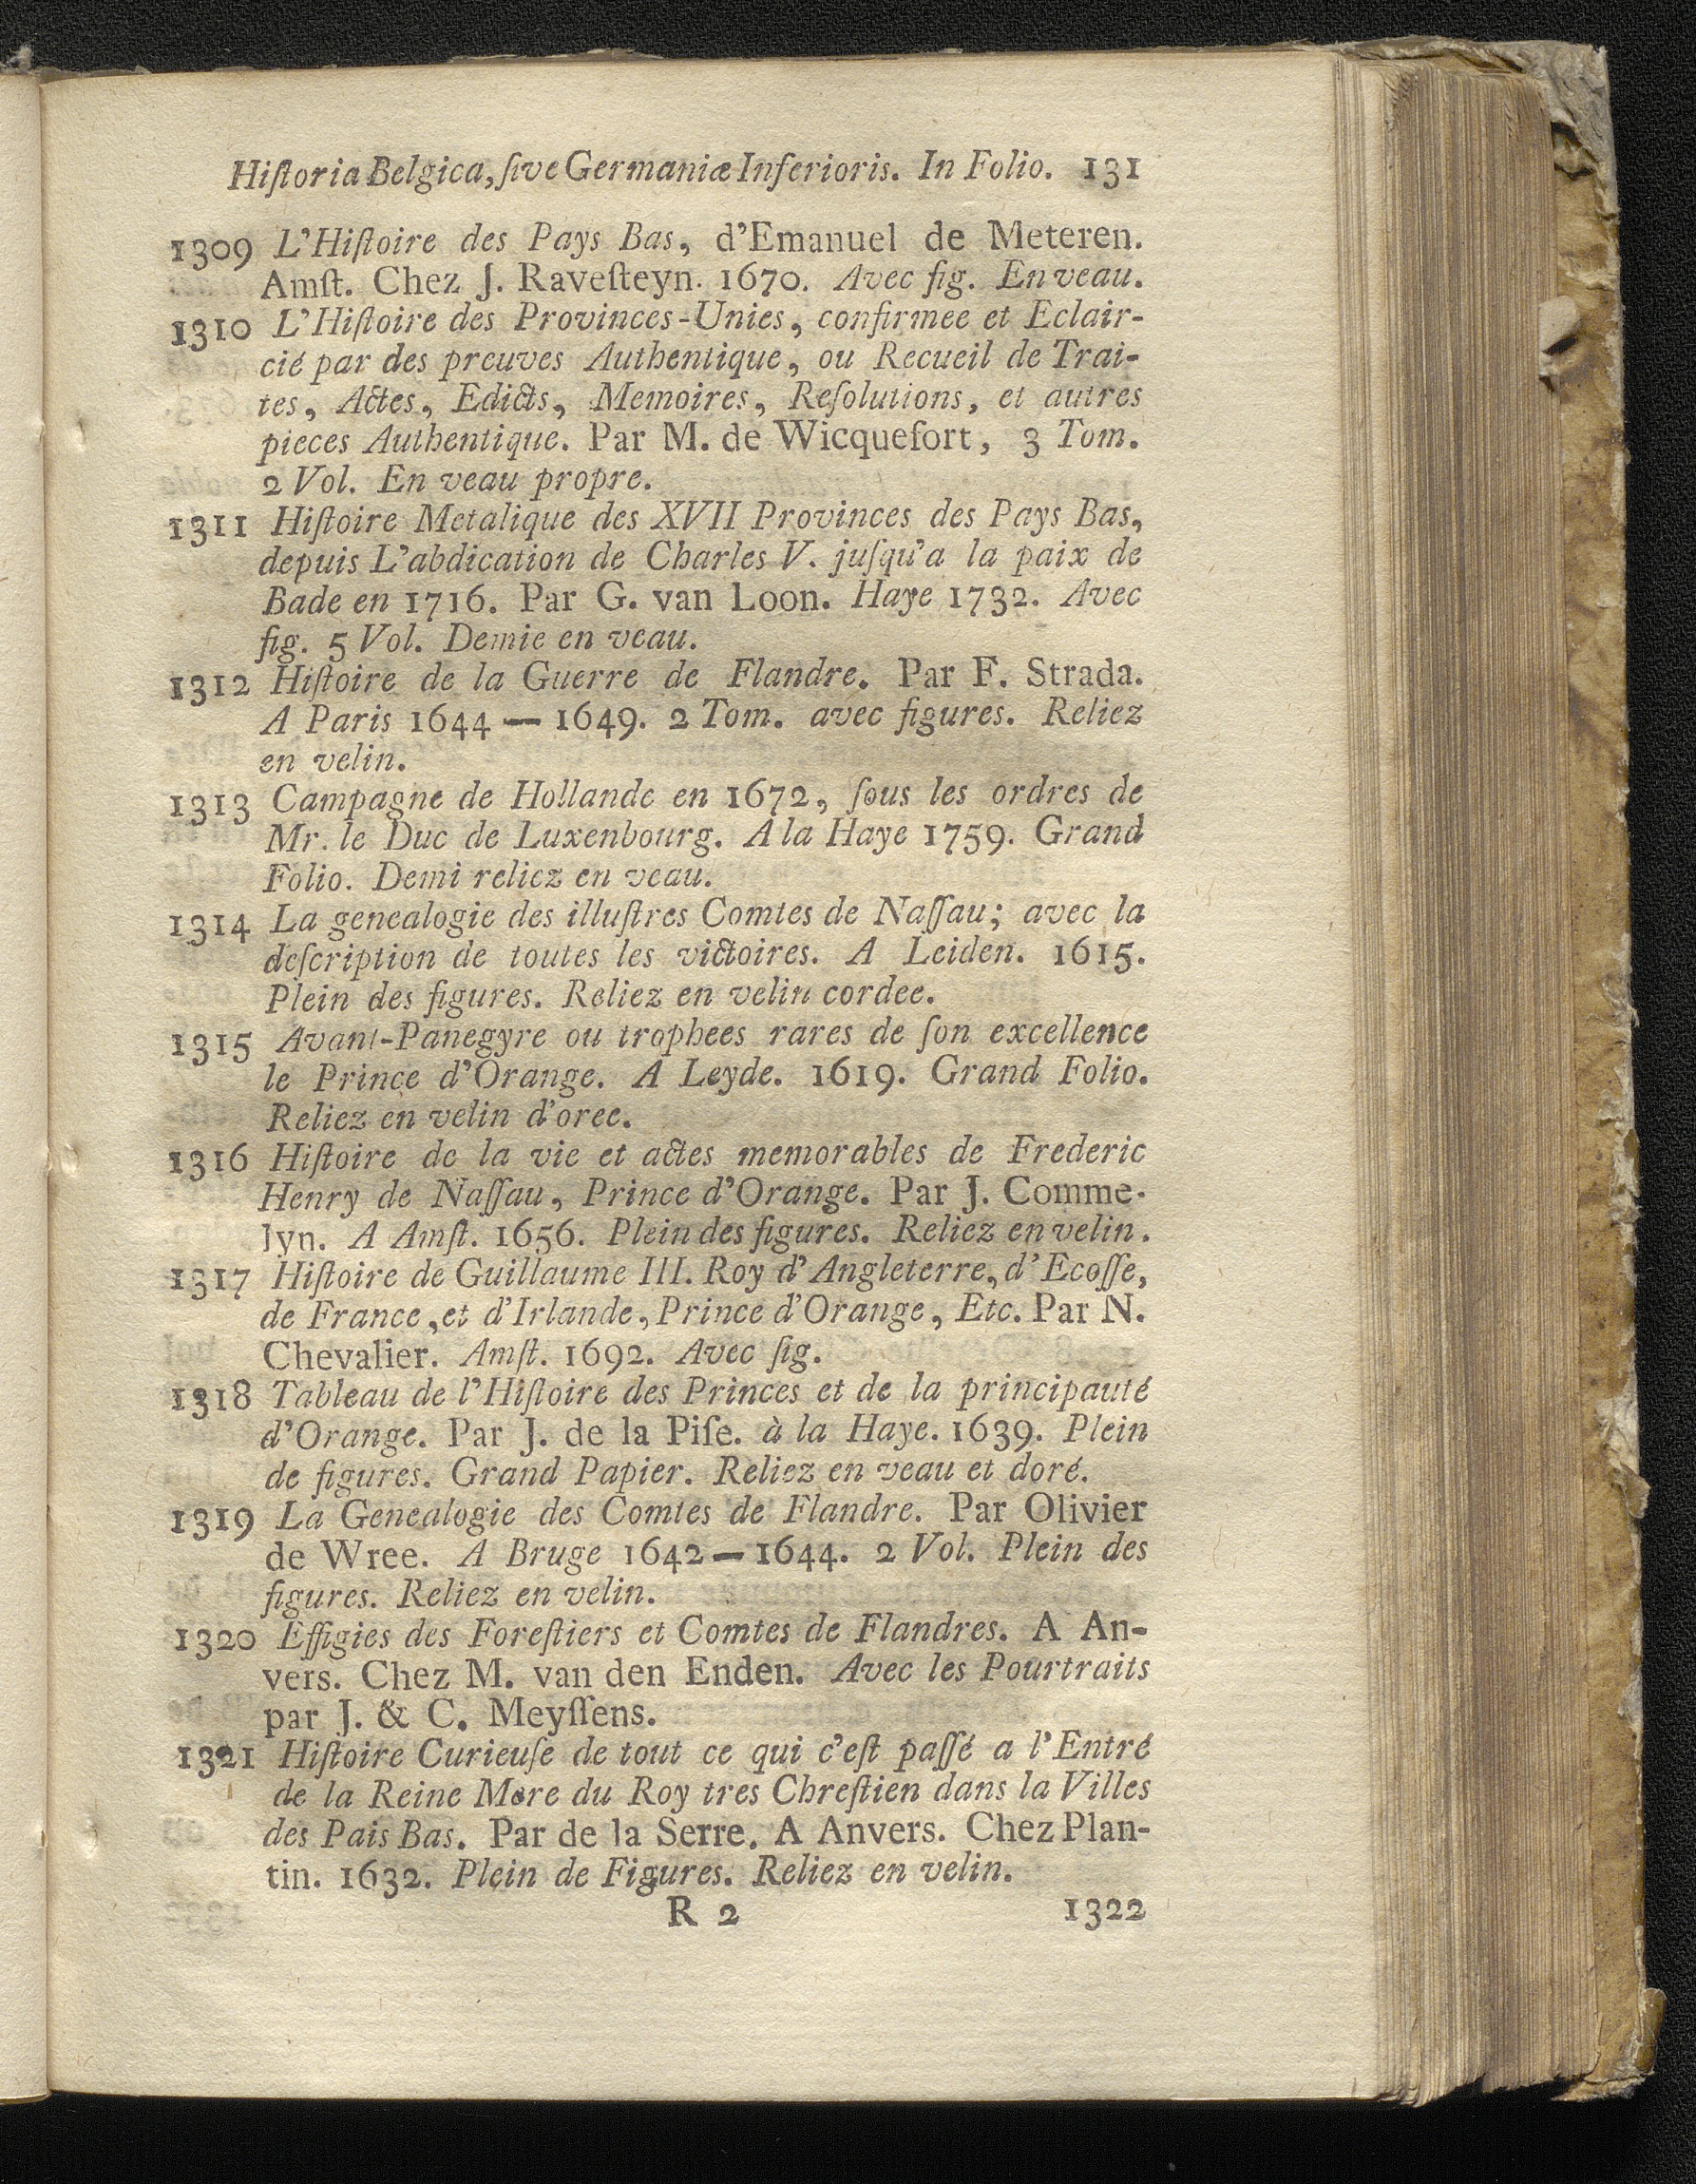 Hiſtoria Belgica, ſive Germaniæ Inferioris. In Folio. 131
1309 L'Hiſtoire des Pays Bas, d'Emanuel de Meteren.
Amſt. Chez J. Raveſteyn. 1670. Avec fig. En veau.
1310 L'Hiſtoire des Provinces-Unies, confirmee et Eclair-
cié par des preuves Authentique, ou Recueil de Trai-
tes, Actes, Edicts, Memoires, Reſolutions, et autres
pieces Authentique. Par M. de Wicquefort, 3 Tom.
2 Vol. En veau propre.
1311 Hiſtoire Metalique des XVII Provinces des Pays Bas,
depuis L'abdication de Charles V. juſqu'a la paix de
Bade en 1716. Par G. van Loon. Haye 1732. Avec
fig. 5 Vol. Demie en veau.
1312 Hiſtoire de la Guerre de Flandre. Par F. Strada.
A Paris 1644 — 1649. 2 Tom. avec figures. Reliez
en velin.
1313 Campagne de Hollande en 1672, ſous les ordres de
Mr. le Duc de Luxenbourg. A la Haye 1759. Grand
Folio. Demi reliez en veau.
1314 La genealogie des illuſtres Comtes de Naſſau; avec la
deſcription de toutes les victoires. A Leiden. 1615.
Plein des figures. Reliez en velin cordee.
1315 Avant-Panegyre ou trophees rares de ſon excellence
le Prince d'Orange. A Leyde. 1619. Grand Folio.
Reliez en velin d'oree.
1316 Hiſtoire de la vie et actes memorables de Frederic
Henry de Naſſau, Prince d'Orange. Par J. Comme-
lyn. A Amſt. 1656. Plein des figures. Reliez en velin.
1317 Hiſtoire de Guillaume III. Roy d'Angleterre, d'Ecoſſe,
de France, et d'Irlande, Prince d'Orange, Etc. Par N.
Chevalier. Amſt. 1692. Avec fig.
1318 Tableau de l'Hiſtoire des Princes et de la principauté
d'Orange. Par J. de la Piſe. à la Haye. 1639. Plein
de figures. Grand Papier. Reliez en veau et doré.
1319 La Genealogie des Comtes de Flandre. Par Olivier
de Wree. A Bruge 1642 — 1644. 2 Vol. Plein des
figures. Reliez en velin.
1320 Effigies des Foreſtiers et Comtes de Flandres. A An-
vers. Chez M. van den Enden. Avec les Pourtraits
par J. & C. Meyſſens.
1321 Hiſtoire Curieuſe de tout ce qui c'eſt paſſé a l'Entré
de la Reine Mere du Roy tres Chreſtien dans la Villes
des Pais Bas. Par de la Serre. A Anvers. Chez Plan-
tin. 1632. Plein de Figures. Reliez en velin.
R 2 1322